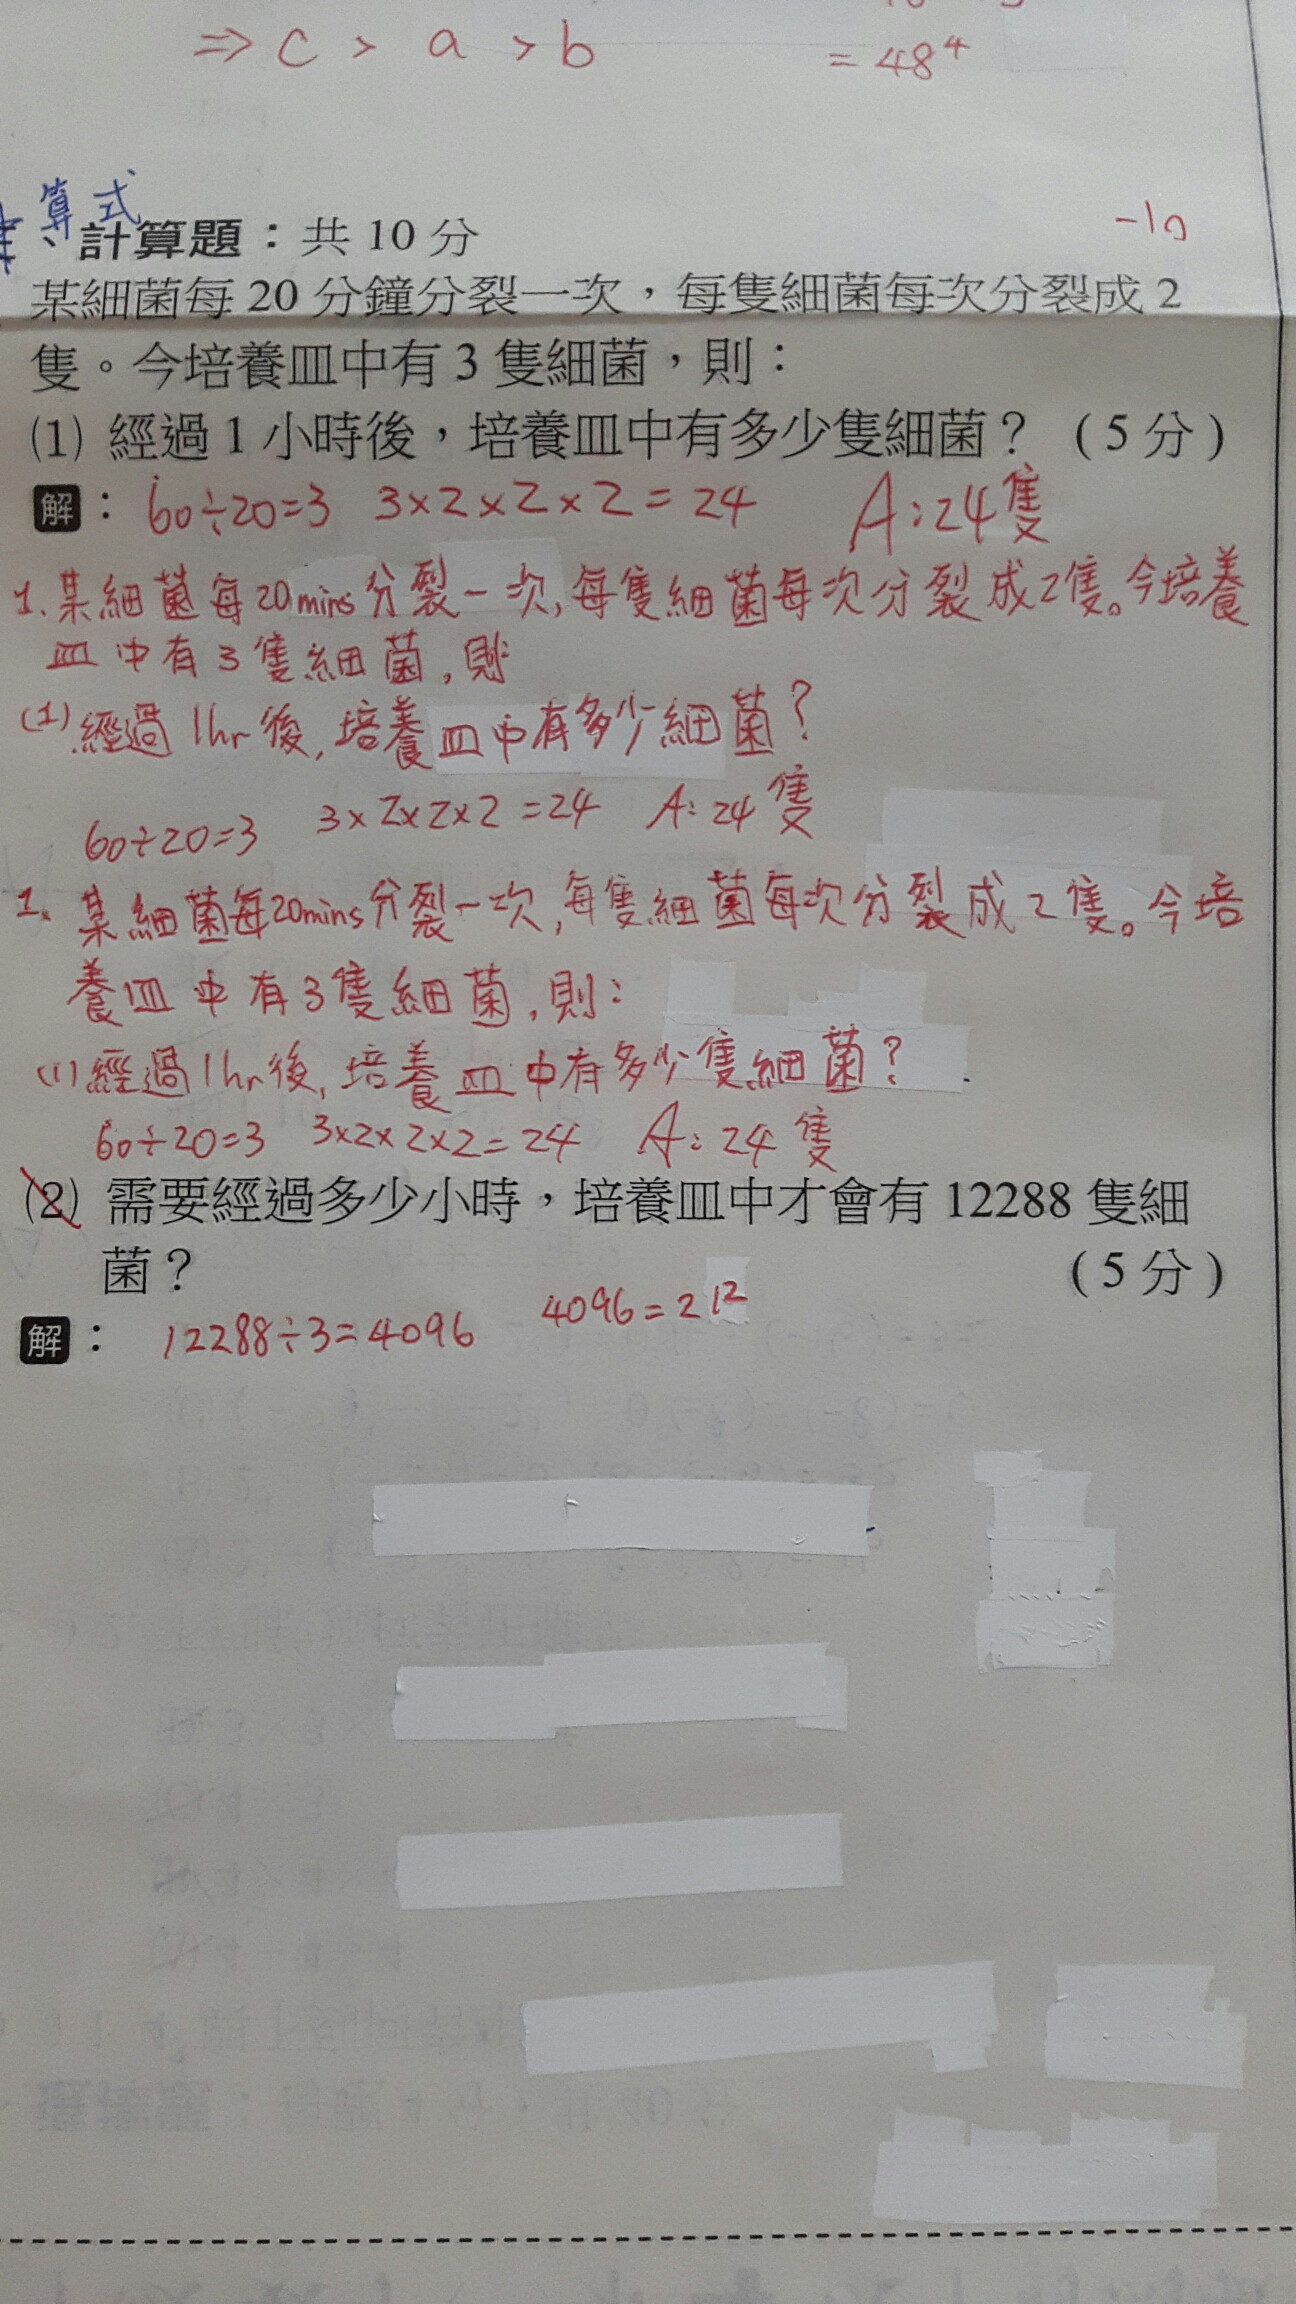 ⇒ c > a > b
= 48⁴
算式
-10
計算題：共 10 分
某細菌每 20 分鐘分裂一次，每隻細菌每次分裂成 2
隻。今培養皿中有 3 隻細菌，則：
(1) 經過 1 小時後，培養皿中有多少隻細菌？ (5 分)
解： 60÷20=3 3×2×2×2=24 A:24隻
1. 某細菌每20mins分裂一次,每隻細菌每次分裂成2隻。今培養
皿中有3隻細菌,則
(1).經過1hr後,培養皿中有多少細菌?
60÷20=3 3×2×2×2=24 A:24隻
1. 某細菌每20mins分裂一次,每隻細菌每次分裂成2隻。今培
養皿中有3隻細菌,則:
(1)經過1hr後,培養皿中有多少隻細菌?
60÷20=3 3×2×2×2=24 A:24隻
(2) 需要經過多少小時，培養皿中才會有 12288 隻細
菌？ (5 分)
解： 12288÷3=4096 4096=2¹²